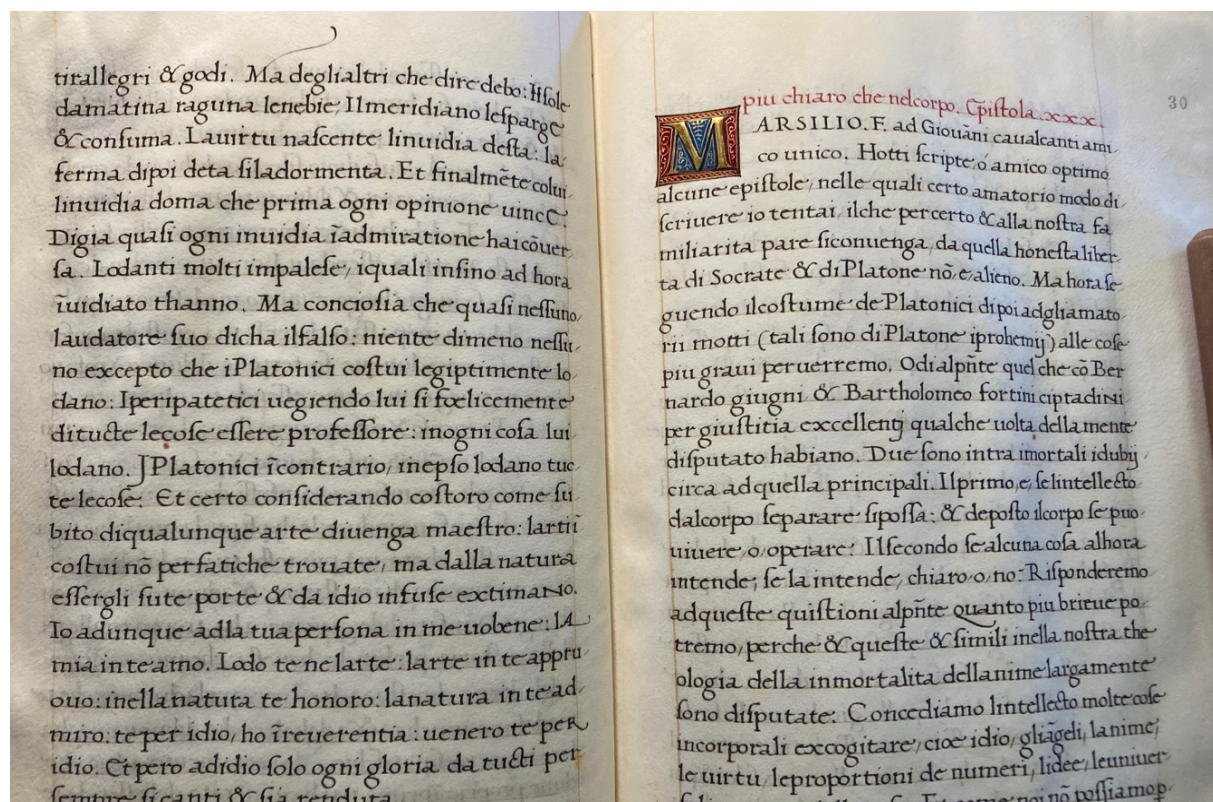 tirallegri & godi. Ma deglialtri che dire debo: Ilsole
damatina raguna lenebie, Ilmeridiano lesparge
& consuma. Lauirtu nascente linuidia desta: la
ferma dipoi deta siladormenta. Et finalmēte colui
linuidia doma che prima ogni opinione uince.
Digia quasi ogni inuidia īadmiratione hai cōuer
sa. Lodanti molti impalese, iquali insino ad hora
īuidiato thanno. Ma conciosia che quasi nessuno
laudatore suo dicha ilfalso: niente dimeno nessu
no excepto che iPlatonici costui legiptimente lo
dano: Iperipatetici uegiendo lui si foelicemente
ditucte lecose essere professore: inogni cosa lui
lodano. JPlatonici īcontrario, inepso lodano tuc
te lecose. Et certo considerando costoro come su
bito diqualunque arte diuenga maestro: lartii
costui nō per fatiche trouate, ma dalla natura
essergli sute porte & da idio infuse extimano.
Io adunque adla tua persona in me uobene: la
mia in te amo. Lodo te nelarte: larte in te appru
ouo: inella natura te honoro: lanatura in te ad
miro: te per idio, ho īreuerentia: uenero te per
idio. Et pero adidio solo ogni gloria da tucti per
sempre si canti & sia renduta.
30
piu chiaro che nelcorpo. Epistola. xxx.
MARSILIO. F. ad Giouāni caualcanti ami
co unico. Hotti scripte o amico optimo
alcune epistole, nelle quali certo amatorio modo di
scriuere io tentai, ilche per certo & alla nostra fa
miliarita pare siconuenga, da quella honesta liber
ta di Socrate & di Platone nō, e, alieno. Ma hora se
guendo ilcostume de Platonici dipoi adgliamato
rii motti (tali sono di Platone iprohemij) alle cose
piu graui peruerremo. Odi alpñte quel che cō Ber
nardo giugni & Bartholomeo fortini ciptadini
per giustitia excellentj qualche uolta della mente
disputato habiano. Due sono intra imortali idubij
circa adquella principali. Ilprimo, e, se lintellecto
dalcorpo separare sipossa: & deposto ilcorpo se puo
uiuere o operare: Ilsecondo se alcuna cosa alhora
intende; se la intende, chiaro o no: Risponderemo
adqueste quistioni alpñte quanto piu brieue po
tremo, perche & queste & simili inella nostra the
ologia della inmortalita dellanime largamente
sono disputate: Concediamo lintellecto molte cose
incorporali excogitare, cioe idio, gliāgeli, lanime,
le uirtu, leproportioni de numeri, lidee, leuniuer
nō possiamo p